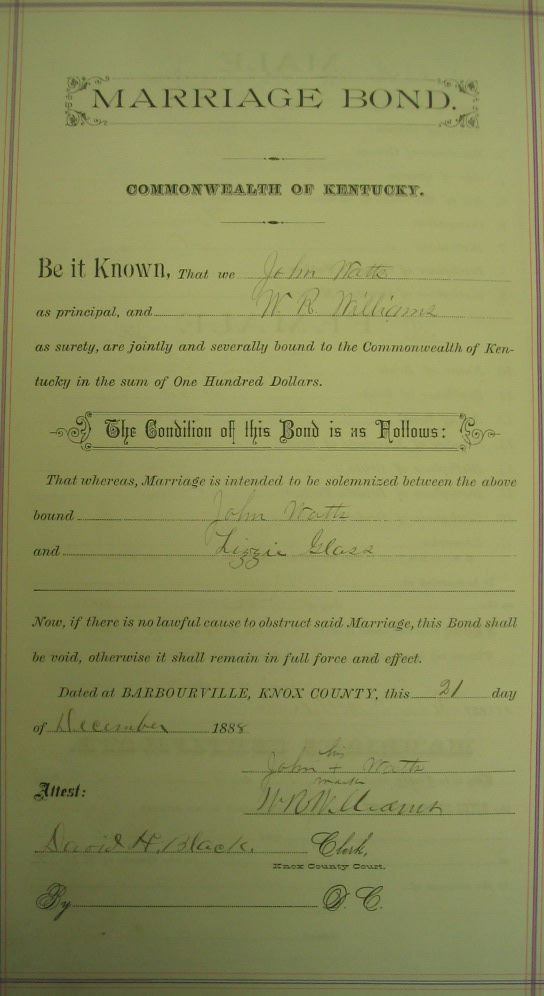 MARRIAGE BOND.
COMMONWEALTH OF KENTUCKY.
Be it Known, That we John Watts
as principal, and W. R. Williams
as surety, are jointly and severally bound to the Commonwealth of Ken-
tucky in the sum of One Hundred Dollars.
The Condition of this Bond is as Follows:
That whereas, Marriage is intended to be solemnized between the above
bound John Watts
and Lizzie Glass
Now, if there is no lawful cause to obstruct said Marriage, this Bond shall
be void, otherwise it shall remain in full force and effect.
Dated at BARBOURVILLE, KNOX COUNTY, this 21 day
of December 1888
his
John + Watts
mark
Attest:
W R Williams
David H. Black. Clerk,
Knox County Court.
By D. C.